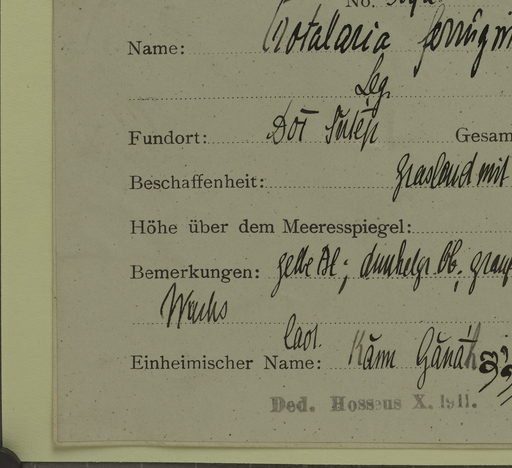 No.
Name: Crotalaria
Leg.
Fundort: Doi Sutep Gesam
Beschaffenheit: Grasland mit
Höhe über dem Meeresspiegel:
Bemerkungen: gelbe Bl.; dunkelgr Ob.;
Wuchs
Laot.
Einheimischer Name:
Ded. Hosseus X. 1911.